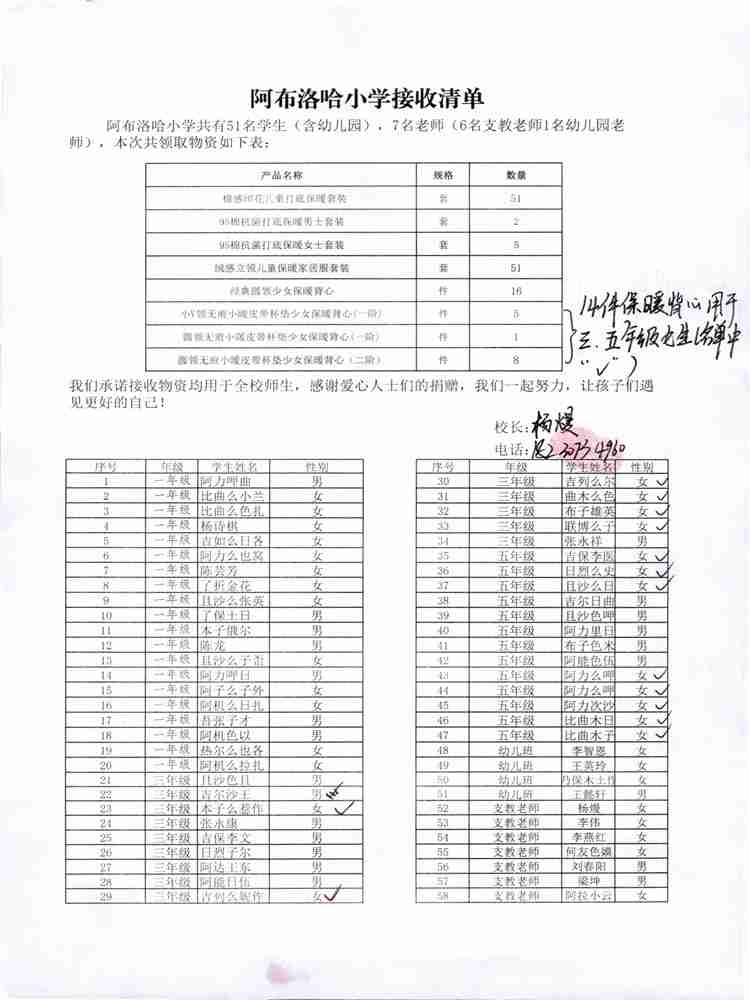 阿布洛哈小学接收清单
阿布洛哈小学共有51名学生（含幼儿园），7名老师（6名支教老师1名幼儿园老
师），本次共领取物资如下表：
产品名称 规格 数量
棉感印花儿童打底保暖套装 套 51
95棉抗菌打底保暖男士套装 套 2
95棉抗菌打底保暖女士套装 套 5
绒感立领儿童保暖家居服套装 套 51
经典圆领少女保暖背心 件 16
小V领无痕小暖皮带杯垫少女保暖背心(一阶) 件 5
圆领无痕小暖皮带杯垫少女保暖背心（一阶） 件 1
圆领无痕小暖皮带杯垫少女保暖背心（二阶） 件 8
14件保暖背心用于
三、五年级女生(名单中
"✓")
我们承诺接收物资均用于全校师生，感谢爱心人士们的捐赠，我们一起努力，让孩子们遇
见更好的自己！
校长：杨嫚
电话：
序号 年级 学生姓名 性别
1 一年级 阿力呷曲 男
2 一年级 比曲么小兰 女
3 一年级 比曲么色扎 女
4 一年级 杨诗棋 女
5 一年级 吉如么日各 女
6 一年级 阿力么也窝 女
7 一年级 陈芸芳 女
8 一年级 了折金花 女
9 一年级 且沙么张英 女
10 一年级 了保土日 男
11 一年级 本子俄尔 男
12 一年级 陈龙 男
13 一年级 且沙么子歪 女
14 一年级 阿力呷日 男
15 一年级 阿子么子外 女
16 一年级 阿机么日扎 女
17 一年级 吾张子才 男
18 一年级 阿机色以 男
19 一年级 热尔么也各 女
20 一年级 阿机么拉扎 女
21 三年级 且沙色且 男
22 三年级 吉尔沙王 男
23 三年级 本子么惹作 女 ✓
24 三年级 张永康 男
25 三年级 吉保李文 男
26 三年级 日烈子尔 男
27 三年级 阿达王东 男
28 三年级 阿能日伍 男
29 三年级 吉列么妮作 女 ✓
序号 年级 学生姓名 性别
30 三年级 吉列么尔 女 ✓
31 三年级 曲木么色 女 ✓
32 三年级 布子雄英 女 ✓
33 三年级 联博么子 女 ✓
34 三年级 张永祥 男
35 五年级 吉保李医 女 ✓
36 五年级 日烈么史 女 ✓
37 五年级 且沙么日 女 ✓
38 五年级 吉尔日曲 男
39 五年级 且沙色呷 男
40 五年级 阿力里日 男
41 五年级 布子色米 男
42 五年级 阿能色伍 男
43 五年级 阿力么呷 女 ✓
44 五年级 阿力么呷 女 ✓
45 五年级 阿力次沙 女 ✓
46 五年级 比曲木日 女 ✓
47 五年级 比曲木子 女 ✓
48 幼儿班 李智恩 女
49 幼儿班 王英玲 女
50 幼儿班 乃保木土作 女
51 幼儿班 王懿轩 男
52 支教老师 杨嫚 女
53 支教老师 李伟 女
54 支教老师 李燕红 女
55 支教老师 何友色嫫 女
56 支教老师 刘春阳 男
57 支教老师 梁坤 男
58 支教老师 阿拉小云 女